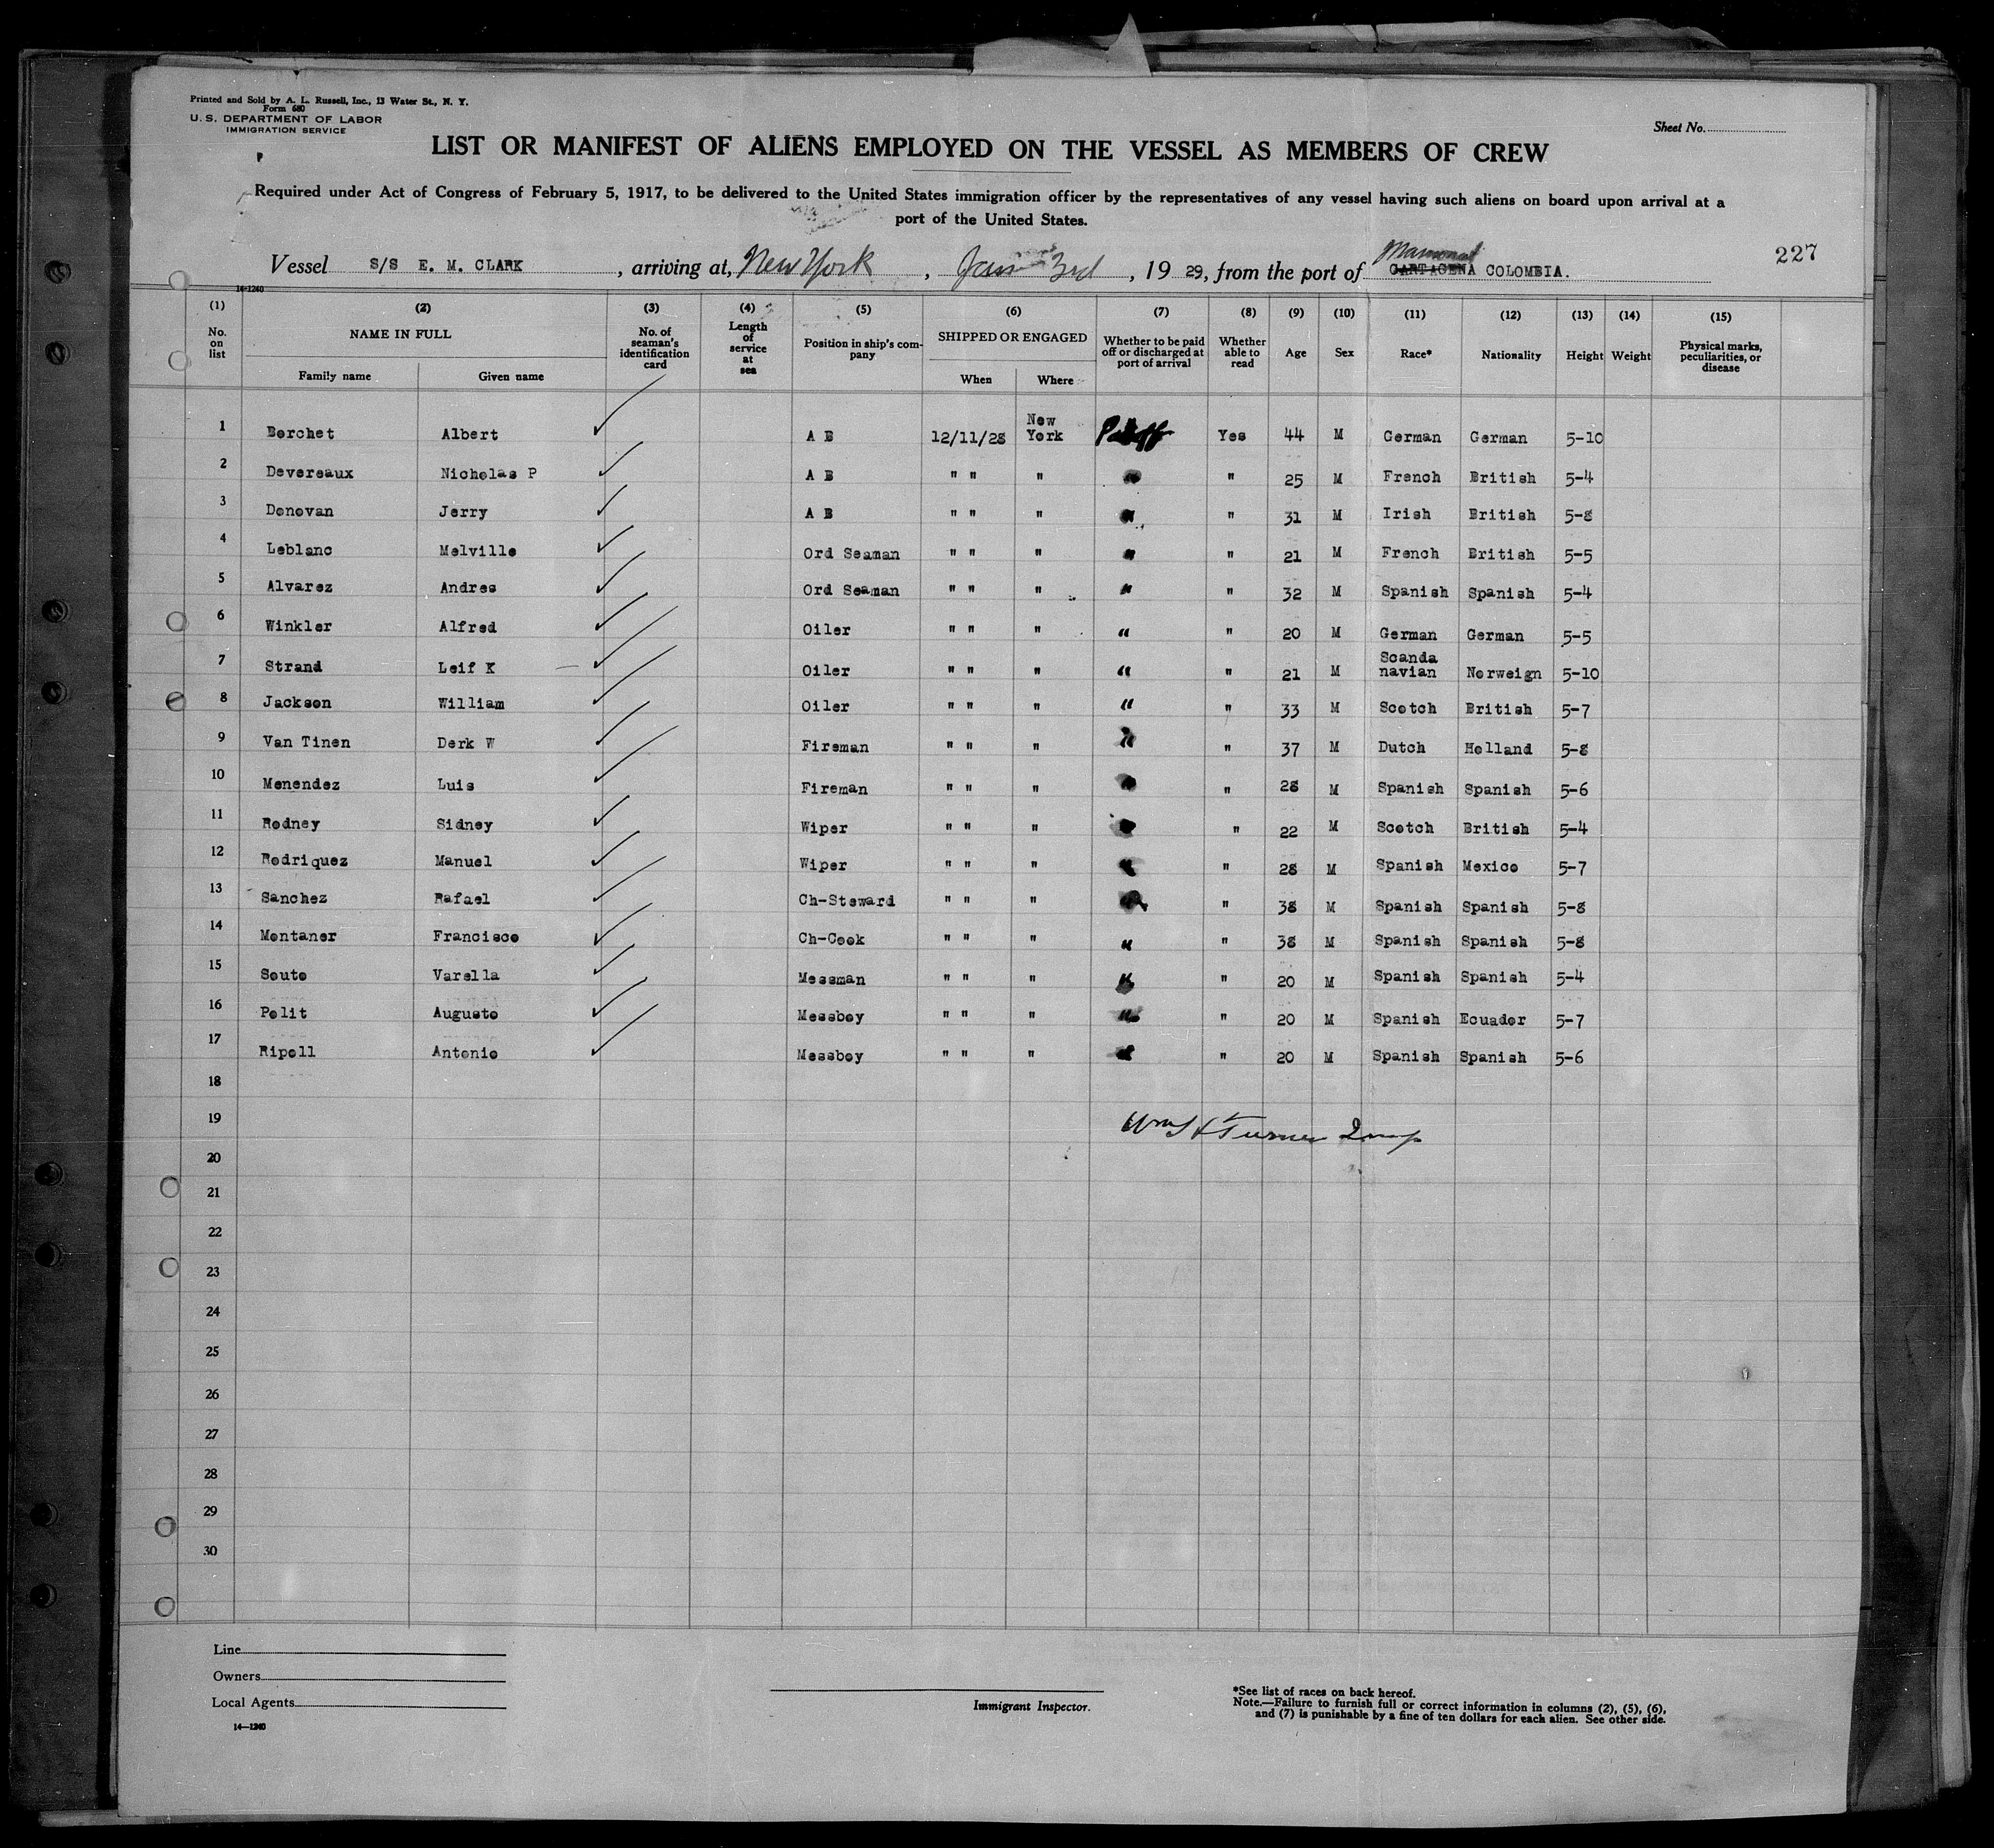 Printed and Sold by A. L. Russell, Inc., 13 Water St., N. Y.
Form 680
U. S. DEPARTMENT OF LABOR
IMMIGRATION SERVICE
Sheet No.
LIST OR MANIFEST OF ALIENS EMPLOYED ON THE VESSEL AS MEMBERS OF CREW
Required under Act of Congress of February 5, 1917, to be delivered to the United States immigration officer by the representatives of any vessel having such aliens on board upon arrival at a
port of the United States.
227
Vessel S/S E. M. CLARK, arriving at, New York, Jan 3rd, 19 29, from the port of Mamonal CARTAGENA COLOMBIA.
14-1240
(1) (2) (3) (4) (5) (6) (7) (8) (9) (10) (11) (12) (13) (14) (15)
No. on list NAME IN FULL No. of seaman's identification card Length of service at sea Position in ship's company SHIPPED OR ENGAGED Whether to be paid off or discharged at port of arrival Whether able to read Age Sex Race* Nationality Height Weight Physical marks, peculiarities, or disease
Family name Given name When Where
1 Berchet Albert A B 12/11/28 New York Yes 44 M German German 5-10
2 Devereaux Nicholas P A B " " " " 25 M French British 5-4
3 Donovan Jerry A B " " " " 31 M Irish British 5-8
4 Leblanc Melville Ord Seaman " " " " " 21 M French British 5-5
5 Alvarez Andres Ord Seaman " " " " " 32 M Spanish Spanish 5-4
6 Winkler Alfred Oiler " " " " " 20 M German German 5-5
7 Strand Leif K Oiler " " " " " 21 M Scanda navian Norweign 5-10
8 Jackson William Oiler " " " " " 33 M Scotch British 5-7
9 Van Tinen Derk W Fireman " " " " " 37 M Dutch Holland 5-8
10 Menendez Luis Fireman " " " " 28 M Spanish Spanish 5-6
11 Rodney Sidney Wiper " " " " 22 M Scotch British 5-4
12 Rodriquez Manuel Wiper " " " " " 28 M Spanish Mexico 5-7
13 Sanchez Rafael Ch-Steward " " " " 38 M Spanish Spanish 5-8
14 Montaner Francisco Ch-Cook " " " " " 38 M Spanish Spanish 5-8
15 Souto Varella Messman " " " " " 20 M Spanish Spanish 5-4
16 Polit Augusto Messboy " " " " " 20 M Spanish Ecuador 5-7
17 Ripoll Antonio Messboy " " " " " 20 M Spanish Spanish 5-6
18
19 Turner Insp
20
21
22
23
24
25
26
27
28
29
30
Line
Owners
Local Agents
14—1240
Immigrant Inspector.
*See list of races on back hereof.
Note.—Failure to furnish full or correct information in columns (2), (5), (6),
and (7) is punishable by a fine of ten dollars for each alien. See other side.